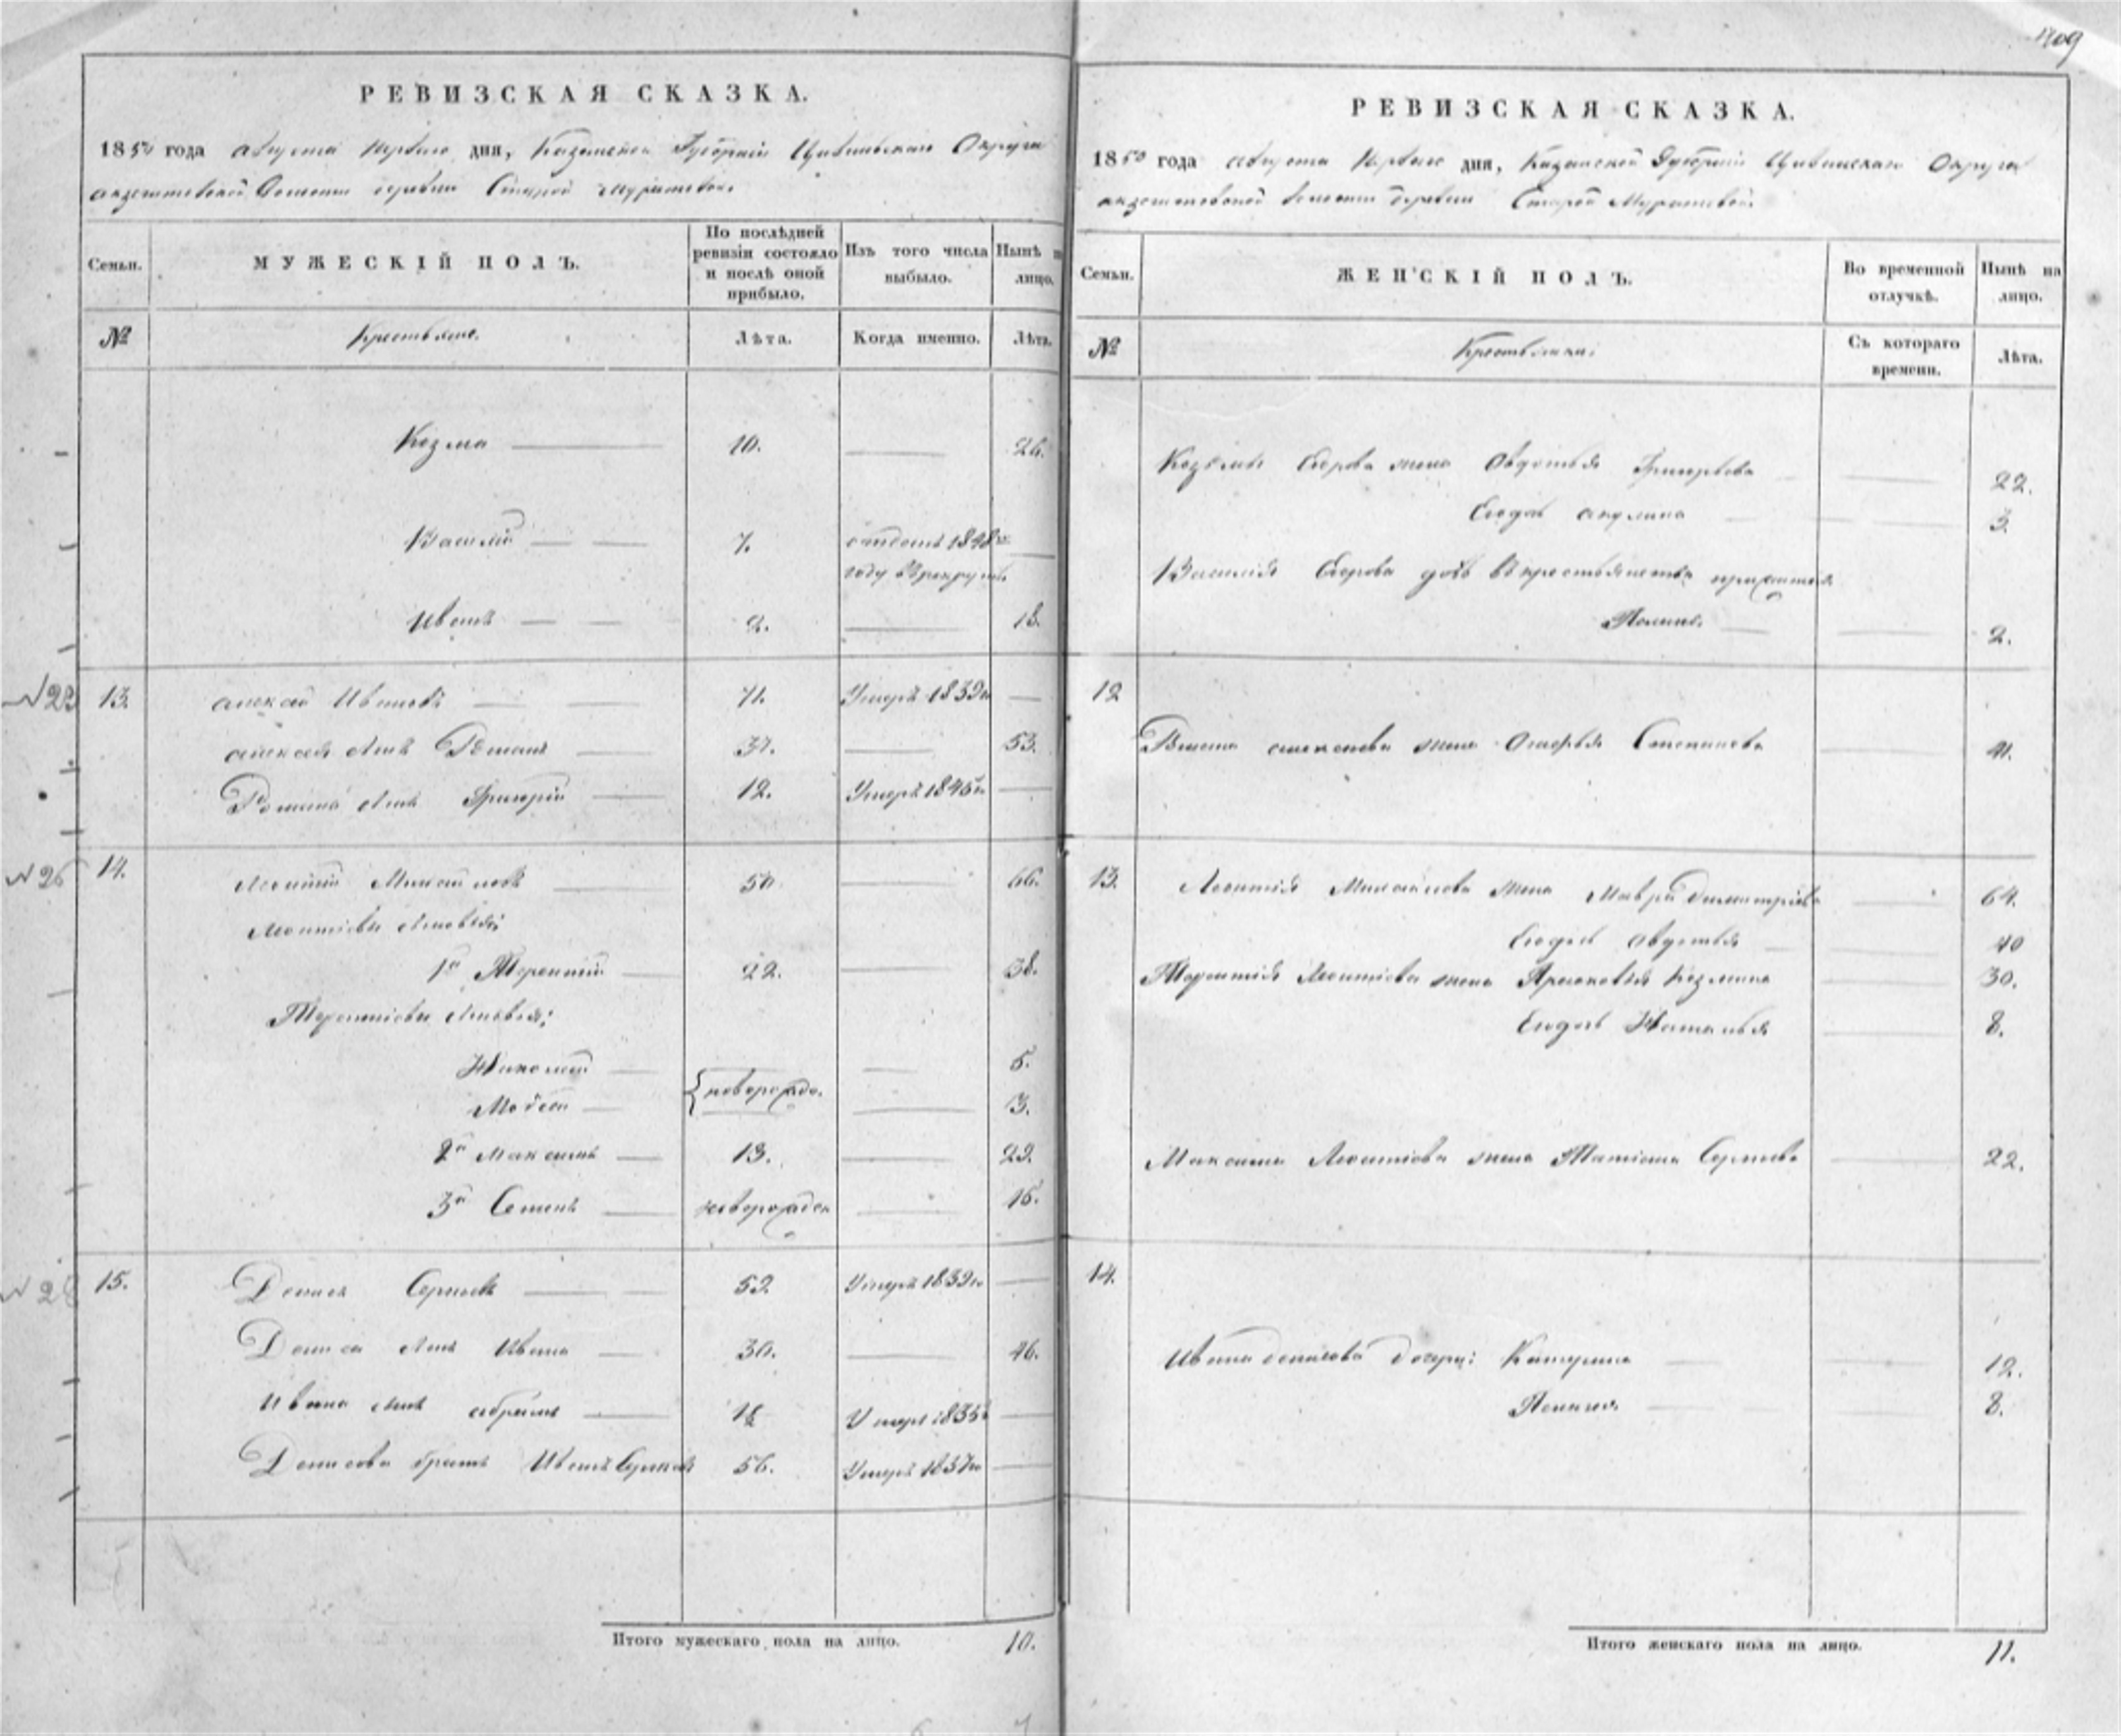 РЕВИЗСКАЯ СКАЗКА.
1850 года августа первого дня, Казанской Губернии Цивильскаго Округа
волости деревни Старой Муратовой.
Семьи. МУЖЕСКІЙ ПОЛЪ. По послѣдней ревизіи состояло и послѣ оной прибыло. Изъ того числа выбыло. Нынѣ на лицо.
№ Крестьяне. Лѣта. Когда именно. Лѣта.
Козма 10. 26.
Василій 7. отданъ 1848го году въ рекруты
Иванъ 2. 18.
№23 13. Алексей Ивановъ 71. Умеръ 1839го
Алексея сынъ Романъ 37. 53.
Романа сынъ Григорій 12. Умеръ 1845го
№26 14. Леонтій Михайловъ 50 66.
Леонтіевы сыновья;
1й Терентій 22. 38.
Терентіевы сыновья:
Николай новорожд. 5.
3.
2й Максимъ 13. 29.
3й Семенъ новорожден 15.
№28 15. Денисъ Сергѣевъ 52. Умеръ 1839го
Дениса сынъ Иванъ 30. 46.
Ивана сынъ Абрамъ Умеръ 1835го
Денисова братъ Иванъ Сергѣевъ 56. Умеръ 1837го
Итого мужескаго пола на лицо. 10.
РЕВИЗСКАЯ СКАЗКА.
1850 года августа первого дня, Казанской Губерніи Цивильскаго Округа
волости деревни Старой Муратовой.
Семьи. ЖЕНСКІЙ ПОЛЪ. Во временной отлучкѣ. Нынѣ на лицо.
№ Крестьянки: Съ котораго времени. Лѣта.
Козьмы Егорова жена Авдотья Григорьева 22.
Егодочь Акулина 3.
Василія Егорова дочь
2.
12
Романа Алексеева жена Степанова 41.
13. Леонтія Михайлова жена Мавра Димитріева 64.
Егодочь Авдотья 40
Терентія Леонтіева жена Прасковья Козмина 30.
Егодочь Наталья 8.
Максима Леонтіева жена Татіана Сергѣева 22.
14.
Ивана Денисова дочери: Катерина 12.
8.
Итого женскаго пола на лицо. 11.